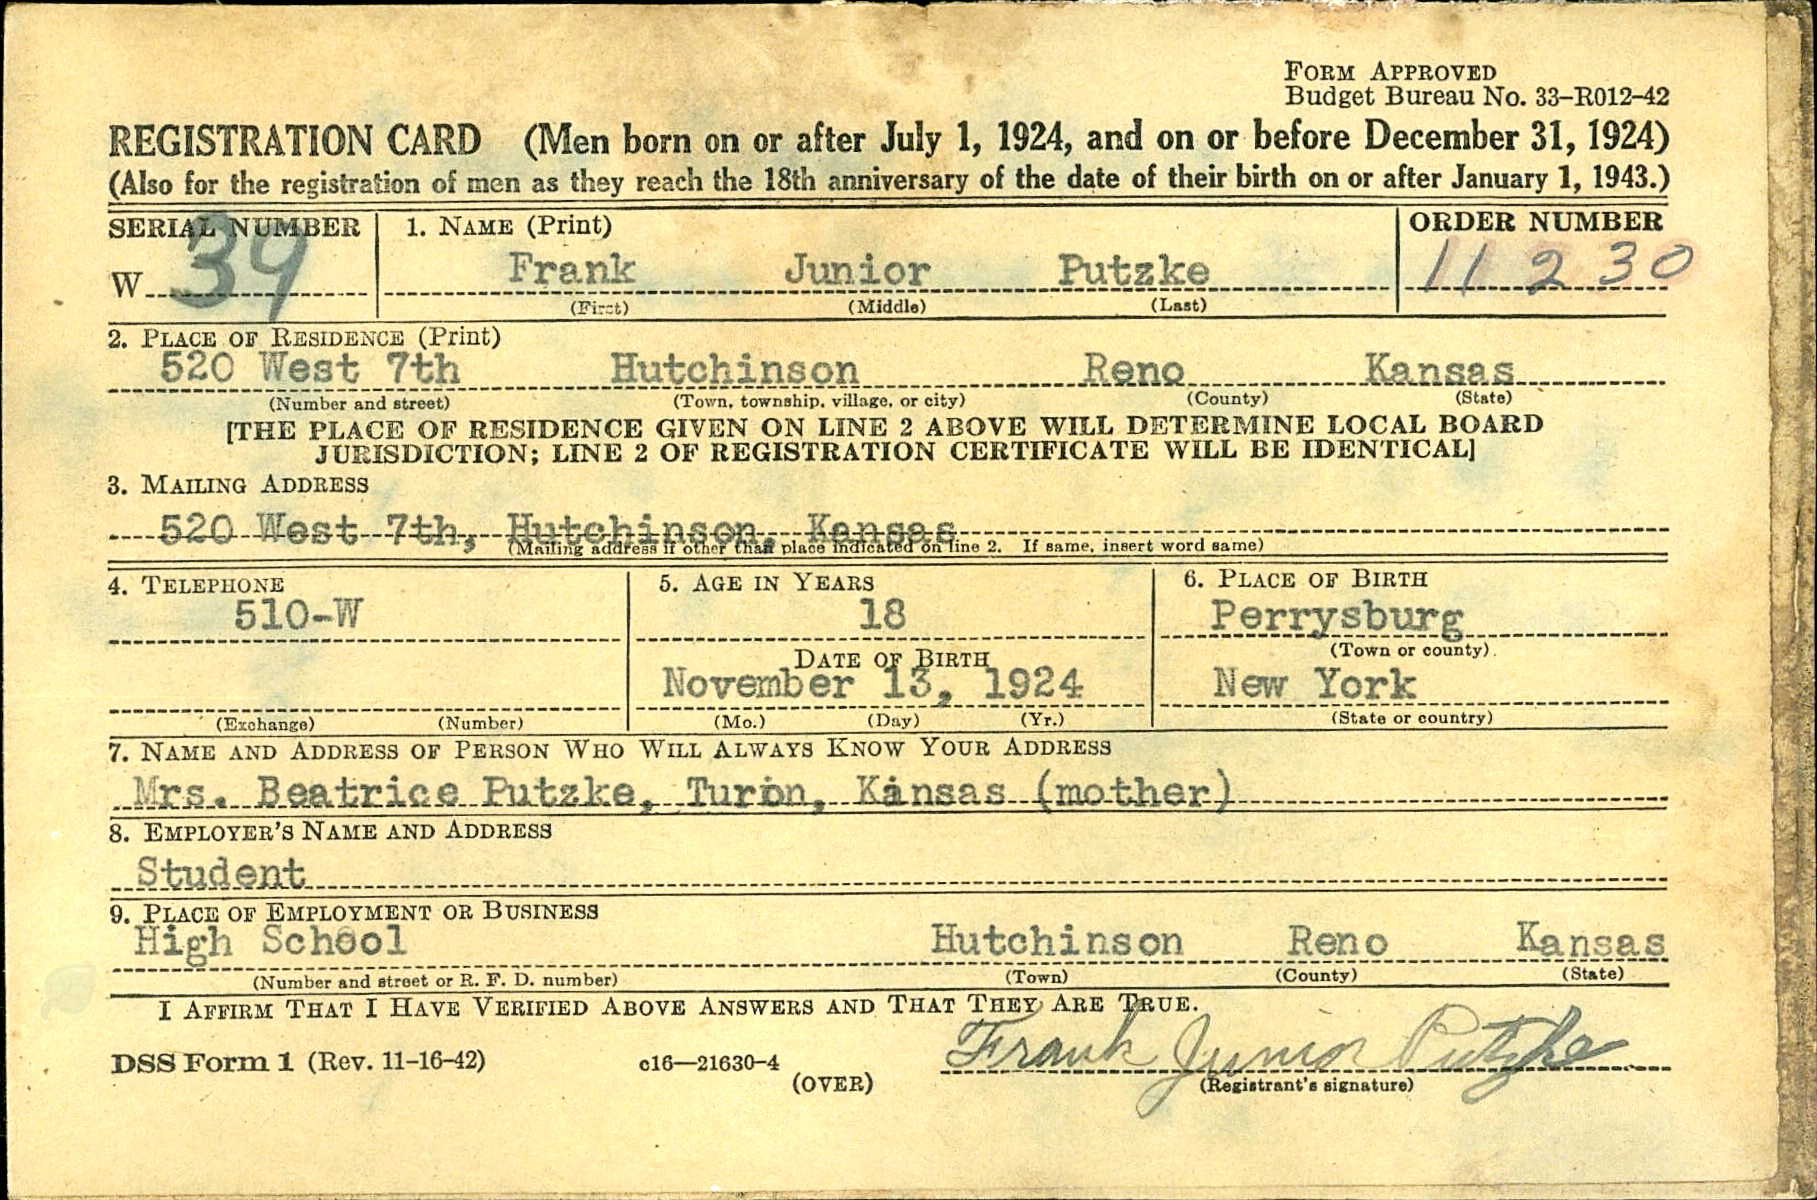 FORM APPROVED
Budget Bureau No. 33-R012-42
REGISTRATION CARD (Men born on or after July 1, 1924, and on or before December 31, 1924)
(Also for the registration of men as they reach the 18th anniversary of the date of their birth on or after January 1, 1943.)
SERIAL NUMBER 1. NAME (Print) ORDER NUMBER
W 39 Frank Junior Putzke 11230
(First) (Middle) (Last)
2. PLACE OF RESIDENCE (Print)
520 West 7th Hutchinson Reno Kansas
(Number and street) (Town, township, village, or city) (County) (State)
[THE PLACE OF RESIDENCE GIVEN ON LINE 2 ABOVE WILL DETERMINE LOCAL BOARD
JURISDICTION; LINE 2 OF REGISTRATION CERTIFICATE WILL BE IDENTICAL]
3. MAILING ADDRESS
520 West 7th, Hutchinson, Kansas
(Mailing address if other than place indicated on line 2. If same, insert word same)
4. TELEPHONE 5. AGE IN YEARS 6. PLACE OF BIRTH
510-W 18 Perrysburg
(Town or county)
DATE OF BIRTH
November 13, 1924 New York
(Exchange) (Number) (Mo.) (Day) (Yr.) (State or country)
7. NAME AND ADDRESS OF PERSON WHO WILL ALWAYS KNOW YOUR ADDRESS
Mrs. Beatrice Putzke, Turon, Kansas (mother)
8. EMPLOYER'S NAME AND ADDRESS
Student
9. PLACE OF EMPLOYMENT OR BUSINESS
High School Hutchinson Reno Kansas
(Number and street or R. F. D. number) (Town) (County) (State)
I AFFIRM THAT I HAVE VERIFIED ABOVE ANSWERS AND THAT THEY ARE TRUE.
DSS Form 1 (Rev. 11-16-42) c16—21630-4 Frank Junior Putzke
(OVER) (Registrant's signature)